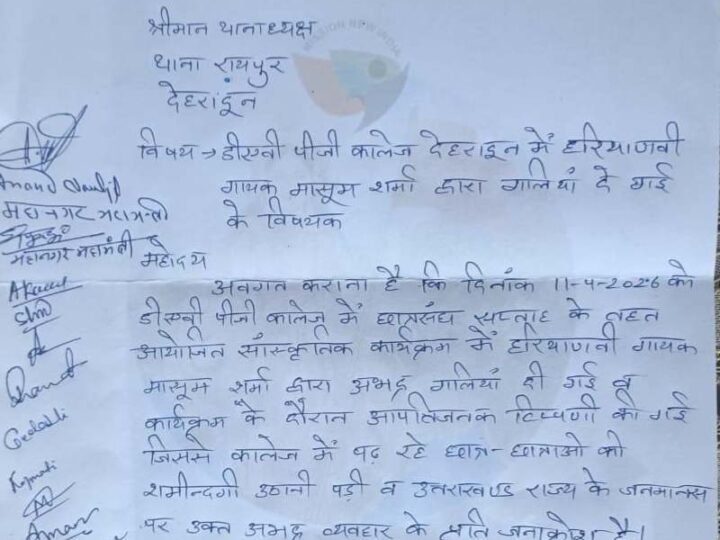 श्रीमान थानाध्यक्ष
थाना रायपुर
देहरादून
विषय → डीएवी पीजी कालेज देहरादून में हरियाणवी
गायक मासूम शर्मा द्वारा गालियां दे गई
के विषयक
महानगर महामन्त्री
महानगर महामंत्री
महोदय
अवगत कराना है कि दिनांक 11-4-2026 को
डीएवी पीजी कालेज में छात्रसंघ सप्ताह के तहत
आयोजित सांस्कृतिक कार्यक्रम में हरियाणवी गायक
मासूम शर्मा द्वारा अभद्र गालियां दी गई व
कार्यक्रम के दौरान आपतिजनक टिप्पणी की गई
जिससे कालेज में पढ़ रहे छात्र-छात्राओ को
शर्मीन्दगी उठानी पड़ी व उत्तराखण्ड राज्य के जनमानस
पर उक्त अभद्र व्यवहार के प्रति जनाक्रोश है।
Aman